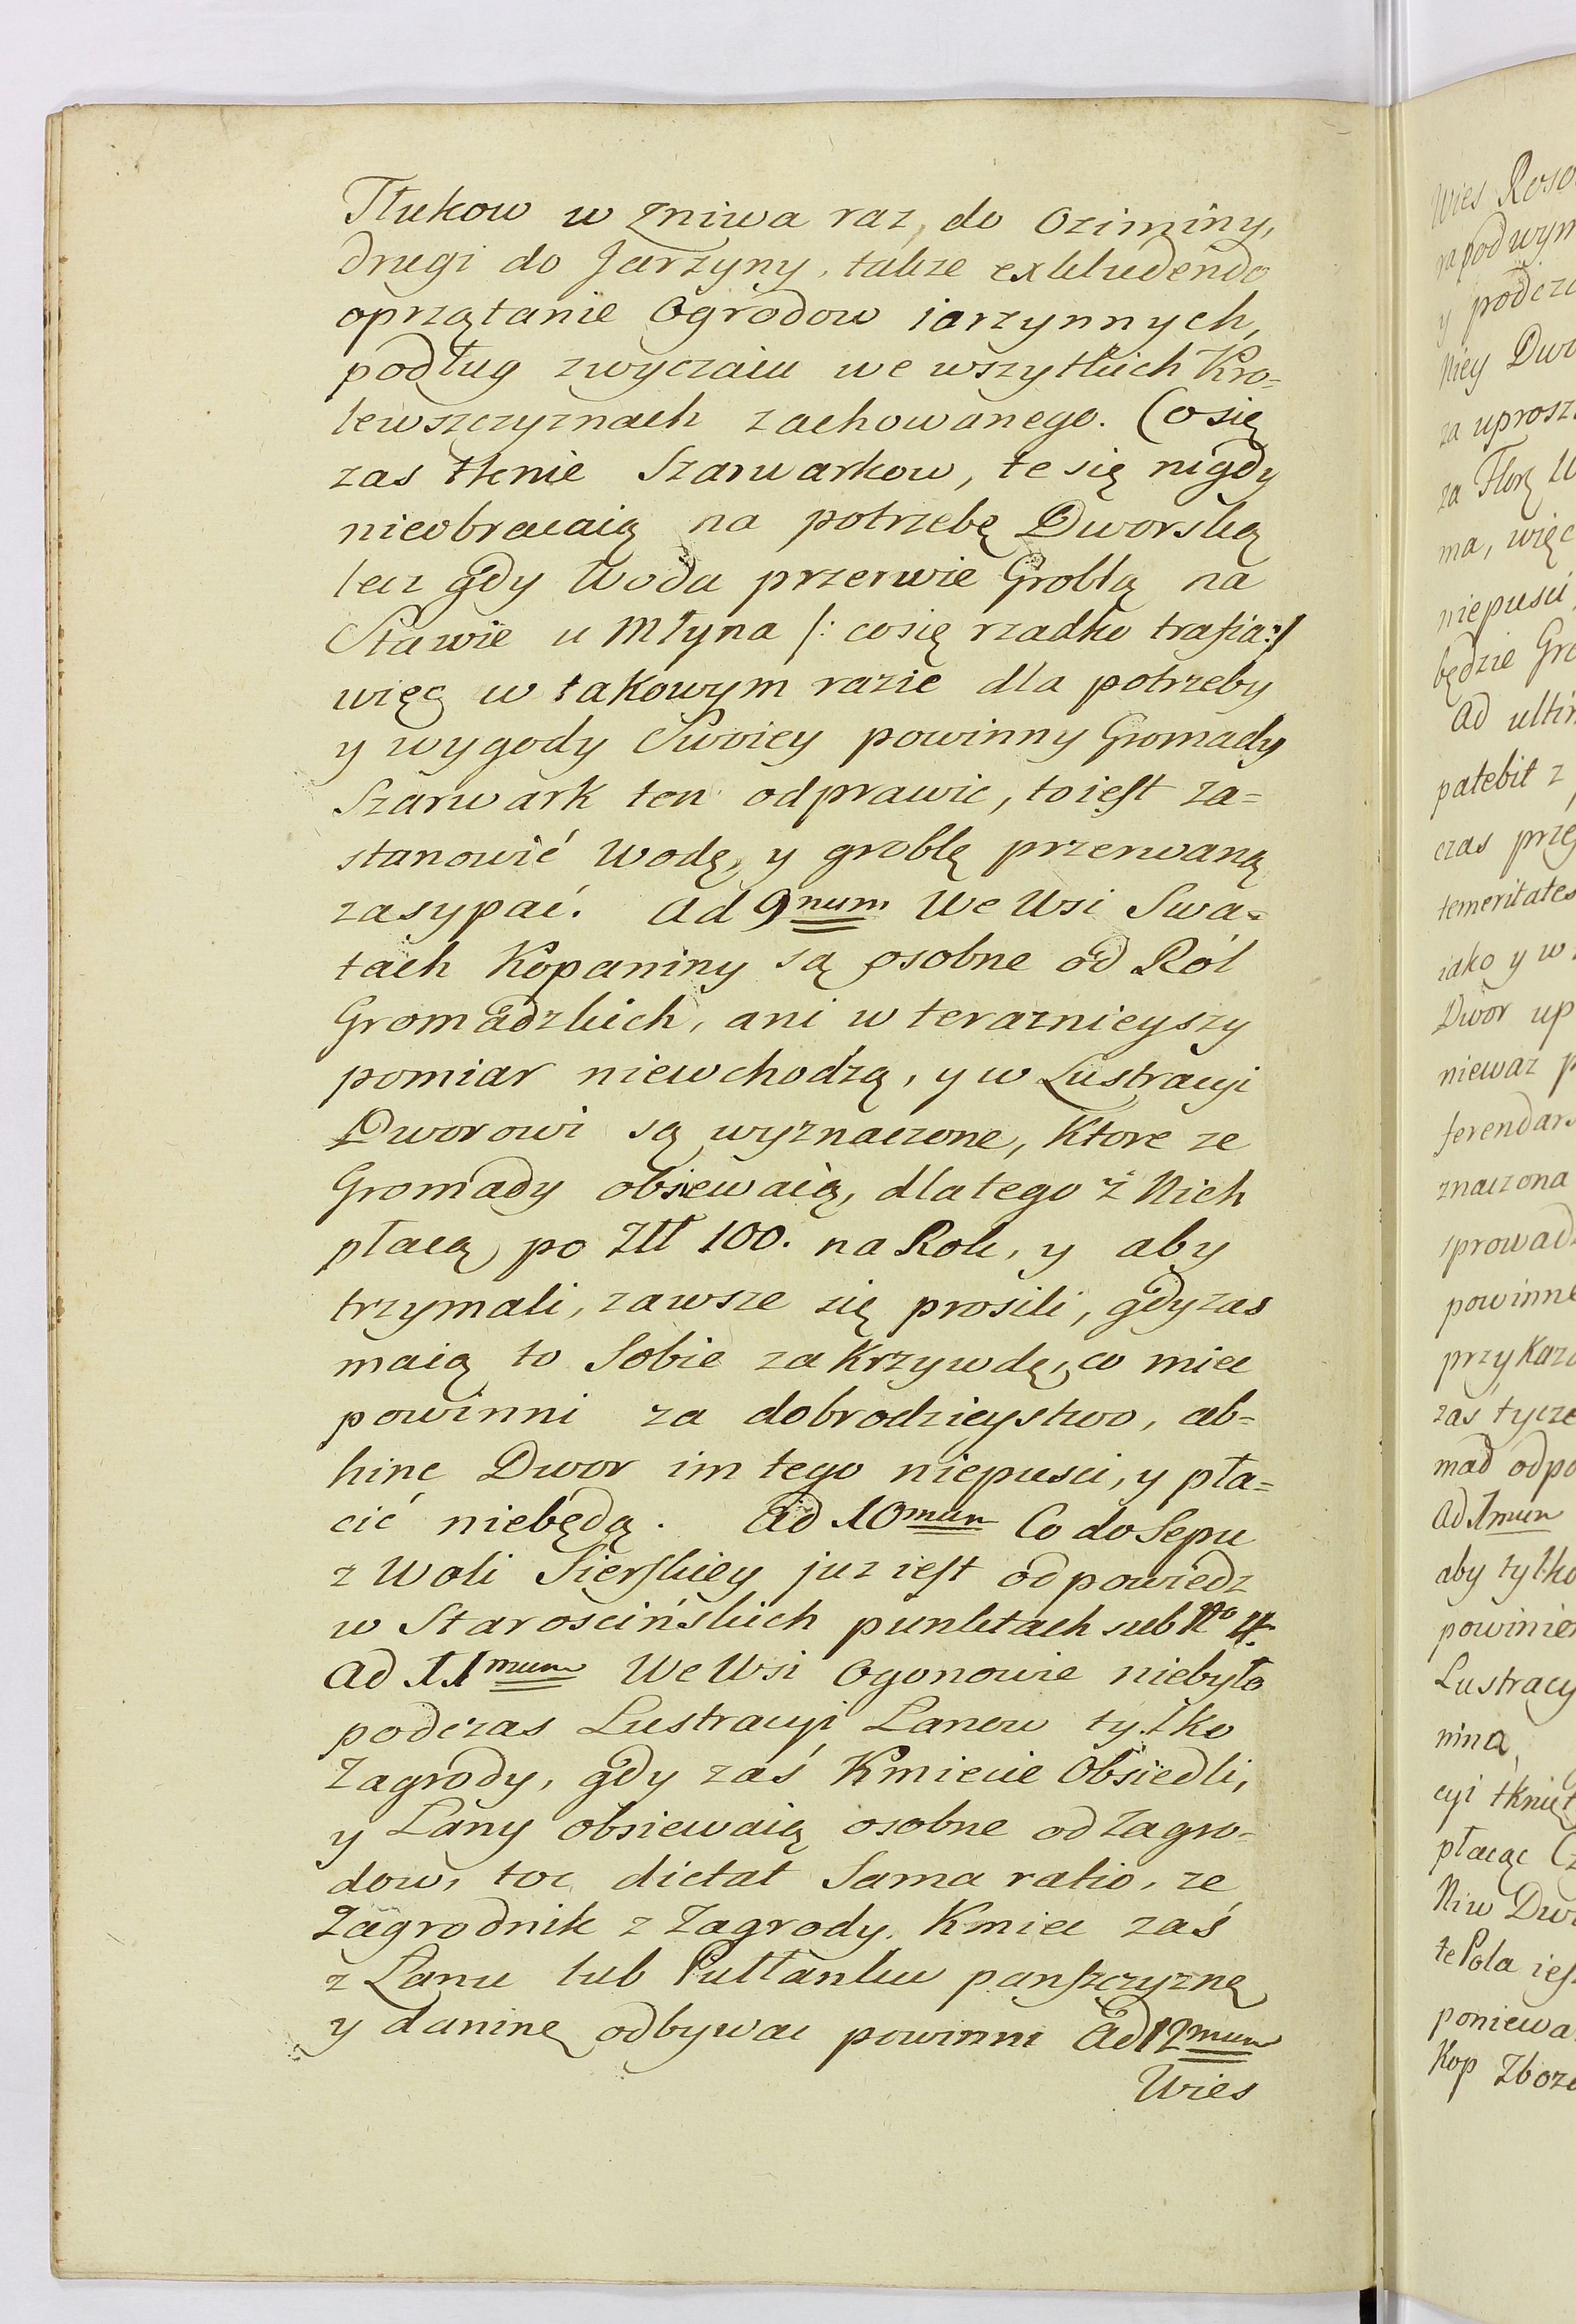 Tłukow w zniwa raz, do Oziminy,
drugi do Jarzyny, takze exkludendo
oprzątanie Ogrodow iarzynnych,
podług zwyczaiu we wszytkich Kro=
lewszczyznach zachowanego. Co się
zas tknie Szarwarkow, te się nigdy
nieobracaią na potrzebę Dworską
lecz gdy Woda przerwie Groblą na
Stawie u Młyna /: co się rzadko trafia :/
więc w takowym razie dla potrzeby
y wygody Swoiey powinny Gromady
Szarwark ten odprawic, to iest za=
stanowić Wodę, y groblę przerwaną
zasypać. Ad 9num We Wsi Swa=
tach Kopaniny są osobne od Ról
Gromadzkich, ani w teraznieyszy
pomiar niewchodzą, y w Lustracyi
Dworowi są wyznaczone, Ktore ze
Gromady obsiewaią, dla tego z Nich
płacą po Złł 100. na Rok, y aby
trzymali, zawsze się prosili, gdy zas
maią to Sobie za Krzywdę, co miec
powinni za dobrodzieystwo, ab=
hinc Dwor im tego niepusci, y pła=
cić niebędą. Ad 10mum Co do Sepu
z Woli Sierskiey juz iest odpowiedz
w Starościńskich punktach sub No 4.
Ad 11mum We Wsi Ogonowie niebyło
podczas Lustracyi Lanow tylko
Zagrody, gdy zaś Kmiecie Obsiedli,
y Lany obsiewaią osobne od Zagro=
dow, toc dictat Sama ratio, ze
Zagrodnik z Zagrody, Kmiec zaś
z Lanu lub Pułłanku panszczyznę
y daninę odbywac powinni Ad 12mum
Wies
Wies
podwym
y podcza
Niey Dwo
za uprosz
za
ma, więc
niepusci
będzie Gro
Ad ultim
patebit z
czas
temeritates
iako y w
Dwor up
niewaz p
ferendars
znaczona
sprowad
powinne
przykaz
zaś tycze
mad odpo
Ad 1mum
aby tylko
powinien
Lustracy
nina,
cyi tknięt
płacąc
Niw Dwo
te Pola iest
poniewa
Kop Zboz